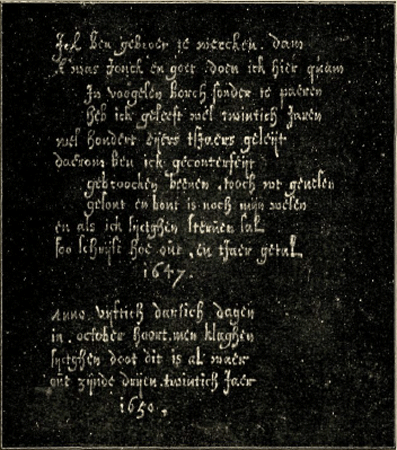 Ick ben gebroer te mercken. dam
k was Jonck en goet. doen ick hier quam
In voogelen borch sonder te paeren
heb ick geleeft wel twintich Jaren
wel hondert eijers tsJaers geleijt
daerom ben ick geconterfeijt
gebroocken beenen. noch wt gevelen
gesont en bont is noch mijn wesen
en als ick sijctghen sterven sal
soo schrijft hoe out, en tJaer getal
1647.
Anno. vijftich dartich dagen
in. october hoort. men klaghen
sijctghen doot dit is al waer
out zijnde drijen. twintich Jaer
1650.